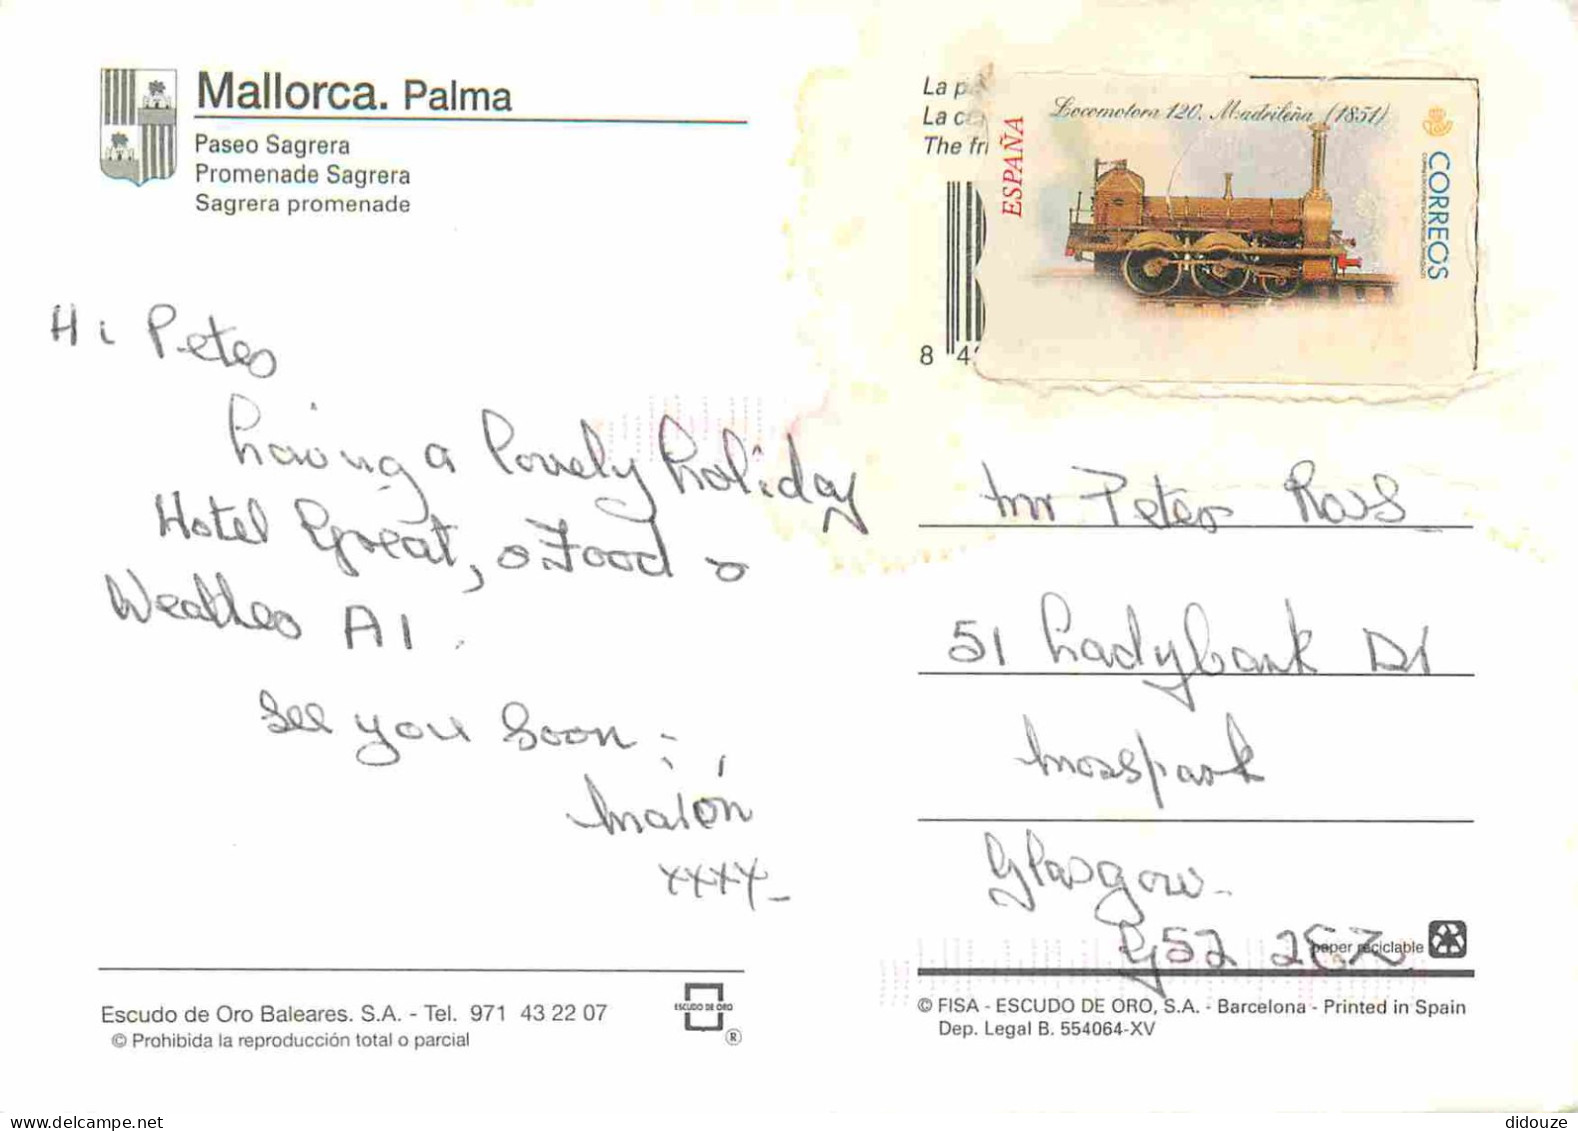 Mallorca. Palma
Paseo Sagrera
Promenade Sagrera
Sagrera promenade
Hi Peter
having a lovely holiday
Hotel Great, & Food &
Weather A1.
See you soon
Marion
xxxx
Escudo de Oro Baleares. S.A. - Tel. 971 43 22 07
© Prohibida la reproducción total o parcial
ESCUDO DE ORO
®
La
La
The
8 4
ESPAÑA
Locomotora 120. Madrileña (1851)
CORREOS
Mr Peter Ross
51 Ladybank Dr
Mosspark
Glasgow
G52 2EZ
paper reciclable
© FISA - ESCUDO DE ORO, S.A. - Barcelona - Printed in Spain
Dep. Legal B. 554064-XV
didouze